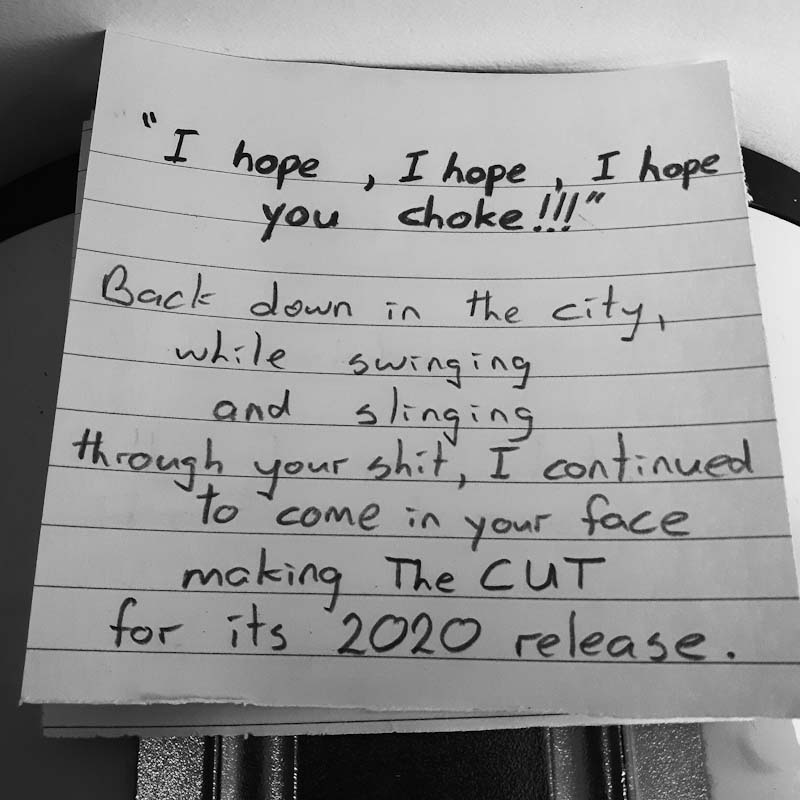 "I hope , I hope , I hope
you choke!!!"
Back down in the city,
while swinging
and slinging
through your shit, I continued
to come in your face
making The CUT
for its 2020 release.